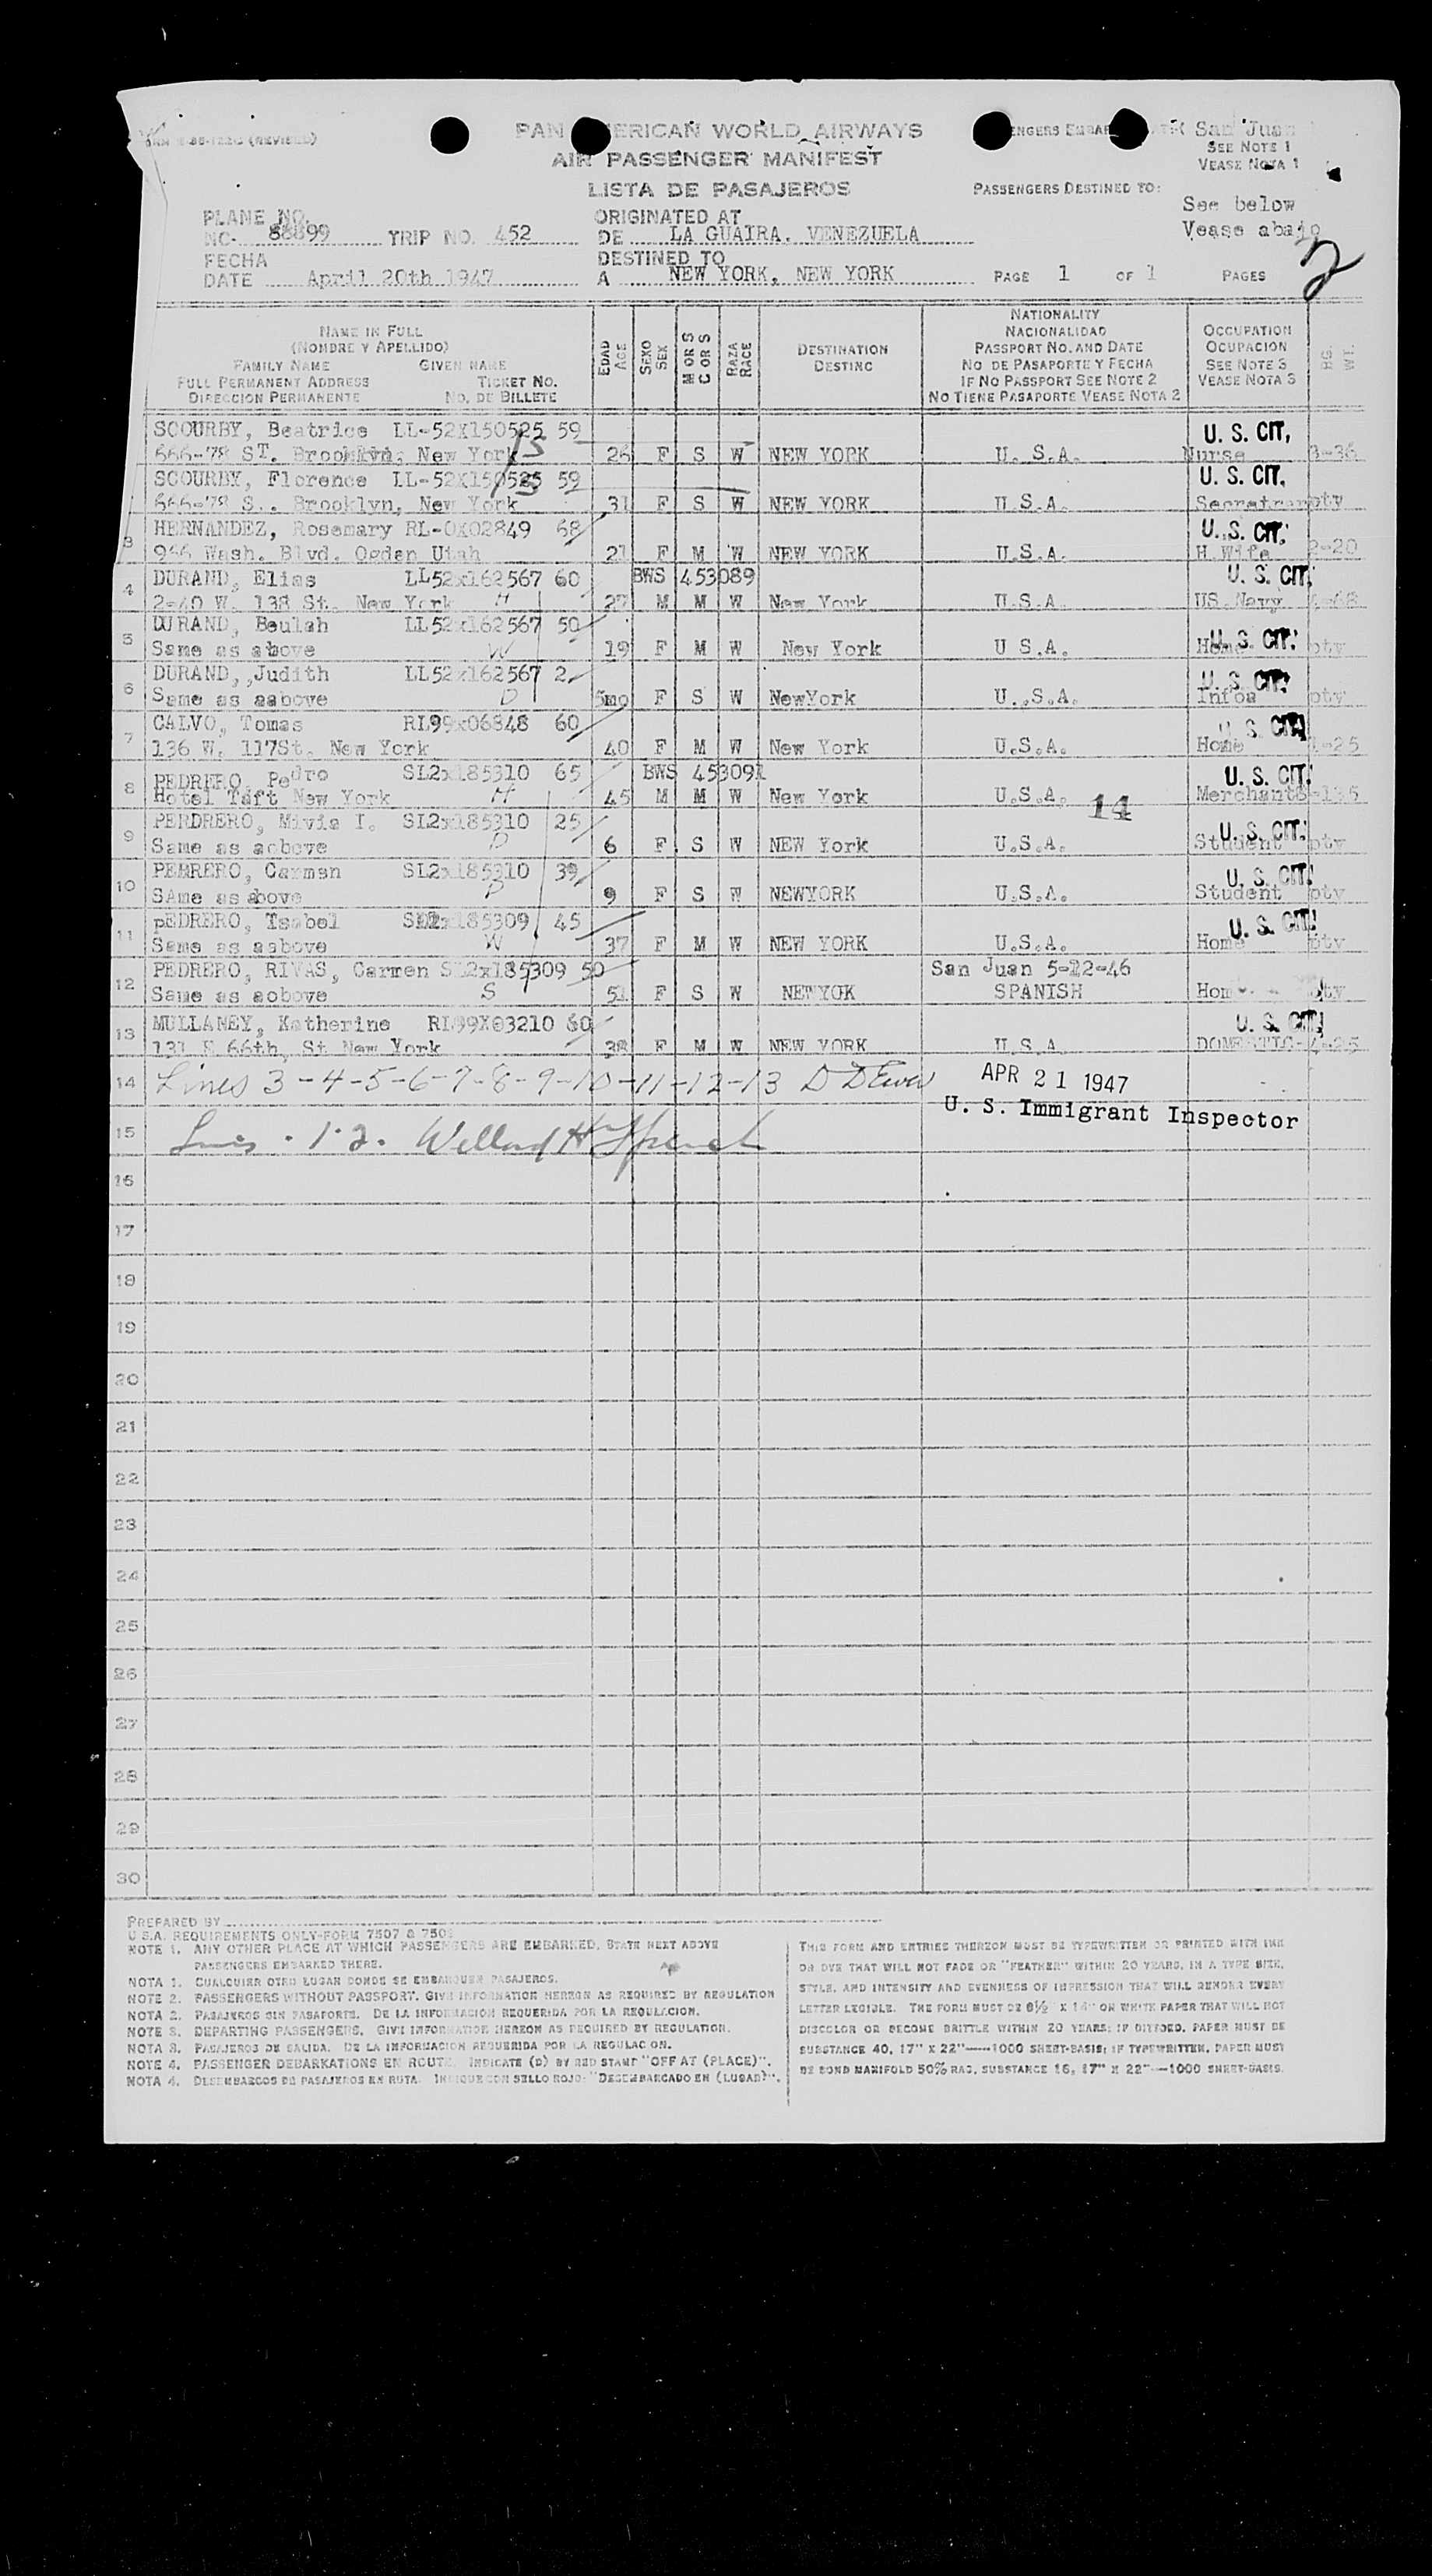 (REVISED)
PAN AMERICAN WORLD AIRWAYS
San Juan
AIR PASSENGER MANIFEST
SEE NOTE 1
VEASE NOTA 1
LISTA DE PASAJEROS
PASSENGERS DESTINED TO:
See below
Vease abajo
PLANE NO.
NC- 88899 TRIP NO. 452
ORIGINATED AT
DE LA GUAIRA, VENEZUELA
FECHA
DATE April 20th 1947
DESTINED TO
A NEW YORK, NEW YORK
PAGE 1 OF 1 PAGES
2
NAME IN FULL
(NOMBRE Y APELLIDO)
FAMILY NAME GIVEN NAME
FULL PERMANENT ADDRESS TICKET NO.
DIRECCION PERMANENTE NO. DE BILLETE
EDAD
AGE
SEXO
SEX
M OR S
C OR S
RAZA
RACE
DESTINATION
DESTINO
NATIONALITY
NACIONALIDAD
PASSPORT NO. AND DATE
NO DE PASAPORTE Y FECHA
IF NO PASSPORT SEE NOTE 2
NO TIENE PASAPORTE VEASE NOTA 2
OCCUPATION
OCUPACION
SEE NOTE 3
VEASE NOTA 3
BG.
WT.
SCOURBY, Beatrice LL-52X150525 59 U. S. CIT.
666-78 ST. Brooklyn, New York 26 F S W NEW YORK U. S.A. Nurse 3-36
SCOURBY, Florence LL-52X150525 59 U. S. CIT.
666-78 S.. Brooklyn, New York 31 F S W NEW YORK U.S.A. pty
HERNANDEZ, Rosemary RL-0X02849 68 U. S. CIT.
3 966 Wash. Blvd. Ogden Utah 21 F M W NEW YORK U.S.A. H.Wife 2-20
DURAND, Elias LL52x162567 60 BWS 453089 U. S. CIT.
4 2-40 W. 138 St. New York H 27 M M W New York U.S.A. US Navy
DURAND, Beulah LL52x162567 50 U. S. CIT.
5 Same as above W 19 F M W New York U S.A. Home pty
DURAND,,Judith LL52x162567 2 U. S. CIT.
6 Same as aabove D 5mo F S W NewYork U.,S.A. pty
CALVO, Tomas RL99x06848 60 U. S. CIT.
7 136 W. 117St. New York 40 F M W New York U.S.A. Home -25
PEDRERO, Pedro SL2x185310 65 BWS 453091 U. S. CIT.
8 Hotel Taft New York H 45 M M W New York U.S.A. 14 Merchant
PERDRERO, Mivia I. SL2x185310 25 U. S. CIT.
9 Same as aobove D 6 F S W NEW York U.S.A. Student pty
PEMRERO, Carmen SL2x185310 39 U. S. CIT.
10 SAme as above D 9 F S W NEWYORK U.S.A. Student pty
pEDRERO, Tsabel 185309 45 U. S. CIT.
11 Same as aabove W 37 F M W NEW YORK U.S.A. Home pty
PEDRERO, RIVAS, Carmen SL2x185309 50 San Juan 5-22-46
12 Same as aobove S 51 F S W NEWYOK SPANISH Hom
MULLANEY, Katherine RL99X03210 60 U. S. CIT.
13 131 E 66th, St New York 38 F M W NEW YORK U.S.A. DOMESTIC 4-25
14 Lines 3-4-5-6-7-8-9-10-11-12-13 APR 21 1947
U. S. Immigrant Inspector
15 Lines . 1.2.
16
17
18
19
20
21
22
23
24
25
26
27
28
29
30
PREPARED BY
U.S.A. REQUIREMENTS ONLY-FORM 7507 &
NOTE 1. ANY OTHER PLACE AT WHICH PASSENGERS ARE EMBARKED, STATE NEXT ABOVE
PASSENGERS EMBARKED THERE.
NOTA 1. CUALQUIER OTRO LUGAR DONDE SE EMBARQUEN PASAJEROS.
NOTE 2. PASSENGERS WITHOUT PASSPORT. GIVE INFORMATION HEREON AS REQUIRED BY REGULATION
NOTA 2. PASAJEROS SIN PASAPORTE. DE LA INFORMACION REQUERIDA POR LA REGULACION.
NOTE 3. DEPARTING PASSENGERS. GIVE INFORMATION HEREON AS REQUIRED BY REGULATION.
NOTA 3. PASAJEROS DE SALIDA. DE LA INFORMACION REQUERIDA POR LA REGULACION.
NOTE 4. PASSENGER DEBARKATIONS EN ROUTE. INDICATE (D) BY RED STAMP "OFF AT (PLACE)".
NOTA 4. DESEMBARCOS DE PASAJEROS EN RUTA. INDIQUE CON SELLO ROJO: "DESEMBARCADO EN (LUGAR)".
THIS FORM AND ENTRIES THEREON MUST BE TYPEWRITTEN OR PRINTED WITH INK
OR DYE THAT WILL NOT FADE OR "FEATHER" WITHIN 20 YEARS, IN A TYPE SIZE,
STYLE, AND INTENSITY AND EVENNESS OF IMPRESSION THAT WILL RENDER EVERY
LETTER LEGIBLE. THE FORM MUST BE 8½ X 14" ON WHITE PAPER THAT WILL NOT
DISCOLOR OR BECOME BRITTLE WITHIN 20 YEARS; IF DITTOED, PAPER MUST BE
SUBSTANCE 40, 17" X 22"—1000 SHEET-BASIS; IF TYPEWRITTEN, PAPER MUST
BE BOND MANIFOLD 50% RAG, SUBSTANCE 16, 17" X 22"—1000 SHEET-BASIS.